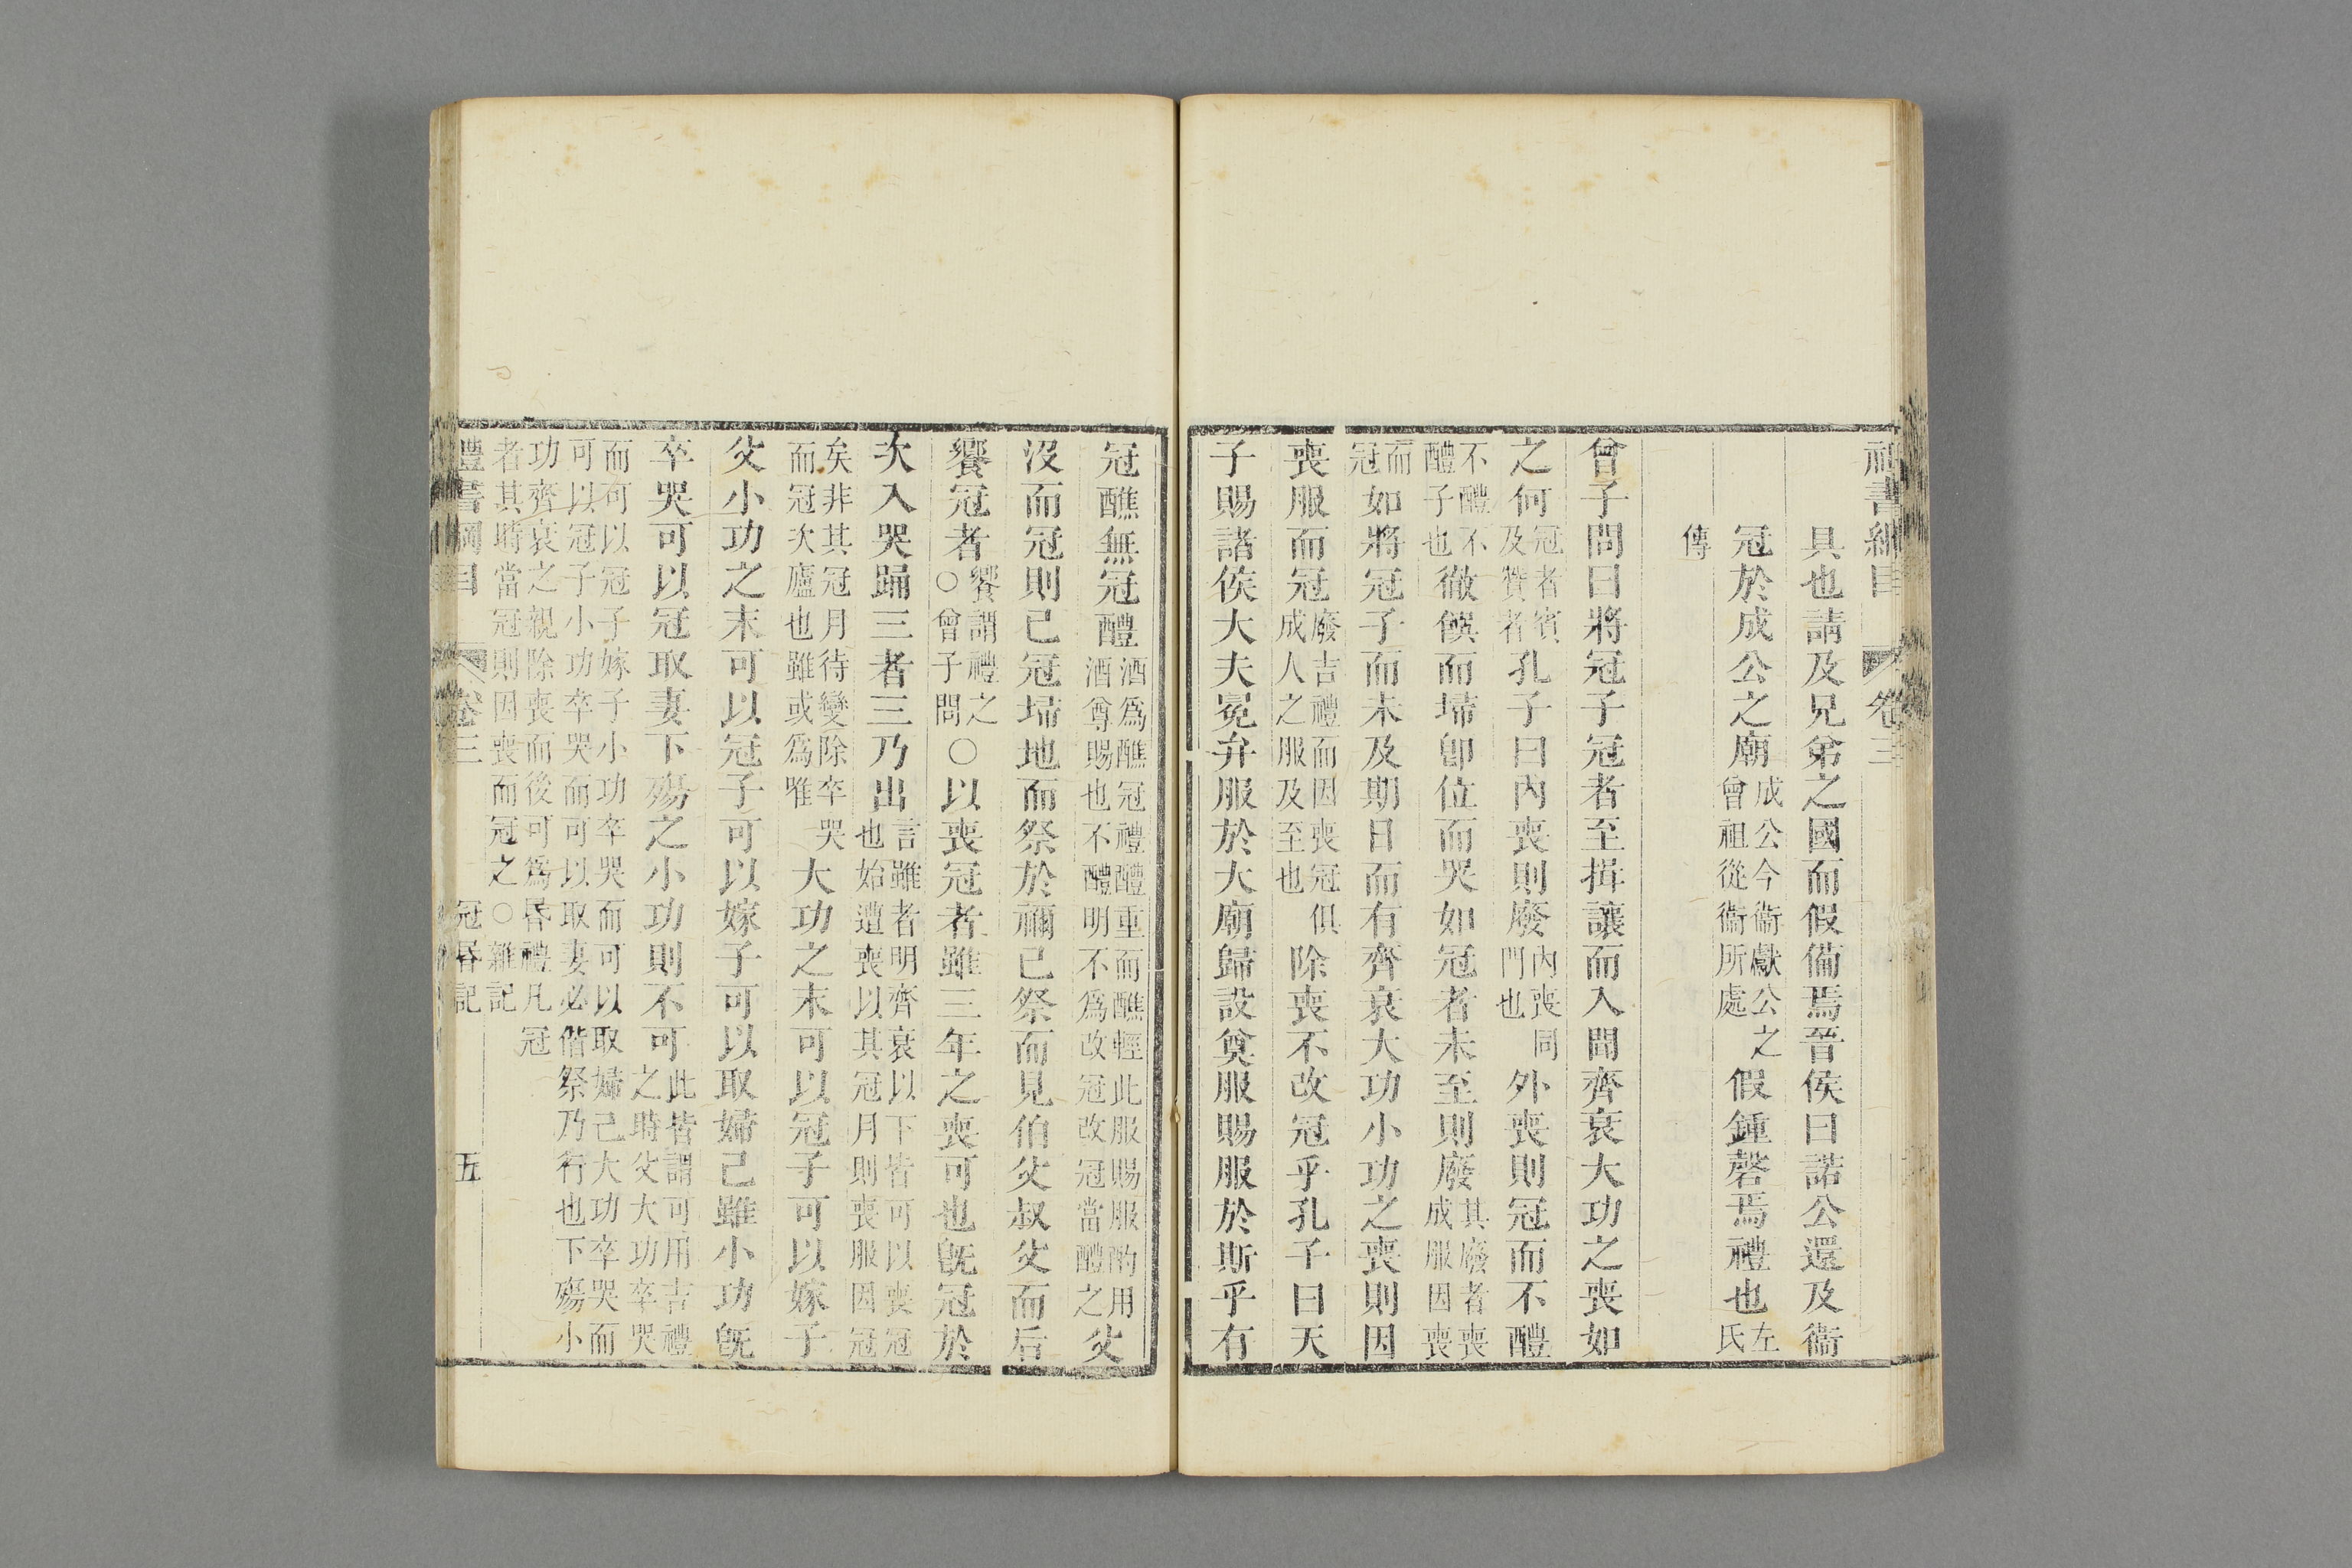 禮書綱目 卷三
具也請及兄弟之國而假備焉晉侯曰諾公還及衞
冠於成公之廟成公今衞獻公之曾祖從衞所處假鍾磬焉禮也左氏
傳
曾子問曰將冠子冠者至揖讓而入聞齊衰大功之喪如
之何冠者賓及贊者孔子曰內喪則廢內喪同門也外喪則冠而不醴
不醴不醴子也徹饌而埽卽位而哭如冠者未至則廢其廢者喪成服因喪
而冠如將冠子而未及期日而有齊衰大功小功之喪則因
喪服而冠廢吉禮而因喪冠俱成人之服及至也除喪不改冠乎孔子曰天
子賜諸侯大夫冕弁服於大廟歸設奠服賜服於斯乎有
冠醮無冠醴酒爲醮冠禮醴重而醮輕此服賜服酌用酒尊賜也不醴明不爲改冠改冠當醴之父
沒而冠則已冠埽地而祭於禰已祭而見伯父叔父而后
饗冠者饗謂禮之○曾子問○以喪冠者雖三年之喪可也旣冠於
次入哭踊三者三乃出言雖者明齊衰以下皆可以喪冠也始遭喪以其冠月則喪服因冠
矣非其冠月待變除卒哭而冠次廬也雖或爲唯大功之末可以冠子可以嫁子
父小功之末可以冠子可以嫁子可以取婦己雖小功旣
卒哭可以冠取妻下殤之小功則不可此皆謂可用吉禮之時父大功卒哭
而可以冠子嫁子小功卒哭而可以取婦己大功卒哭而可以冠子小功卒哭而可以取妻必偕祭乃行也下殤小
功齊衰之親除喪而後可爲昏禮凡冠者其時當冠則因喪而冠之○雜記
禮書綱目 卷三 冠昏記 五